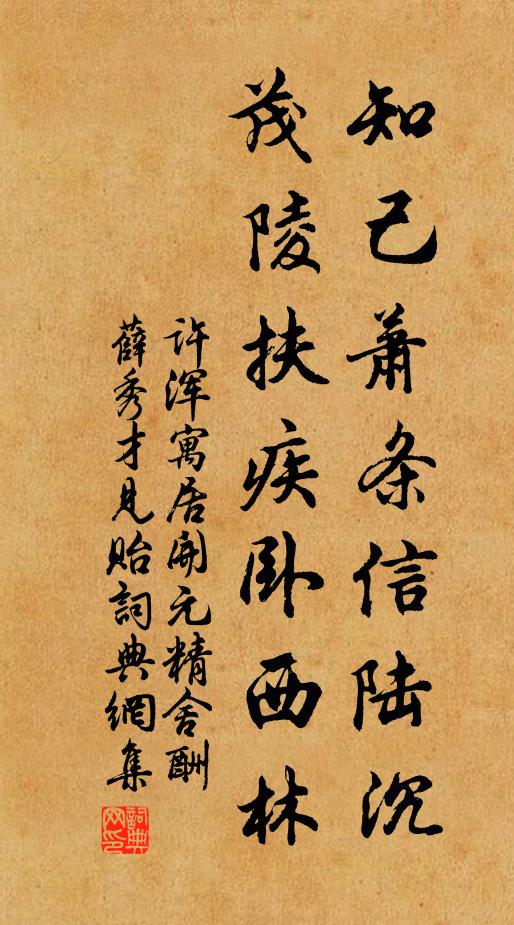 知己萧条信陆沉
茂陵扶疾卧西林
许浑寓居開元精舍酬
薛秀才見贻詞典網集
詞典网印